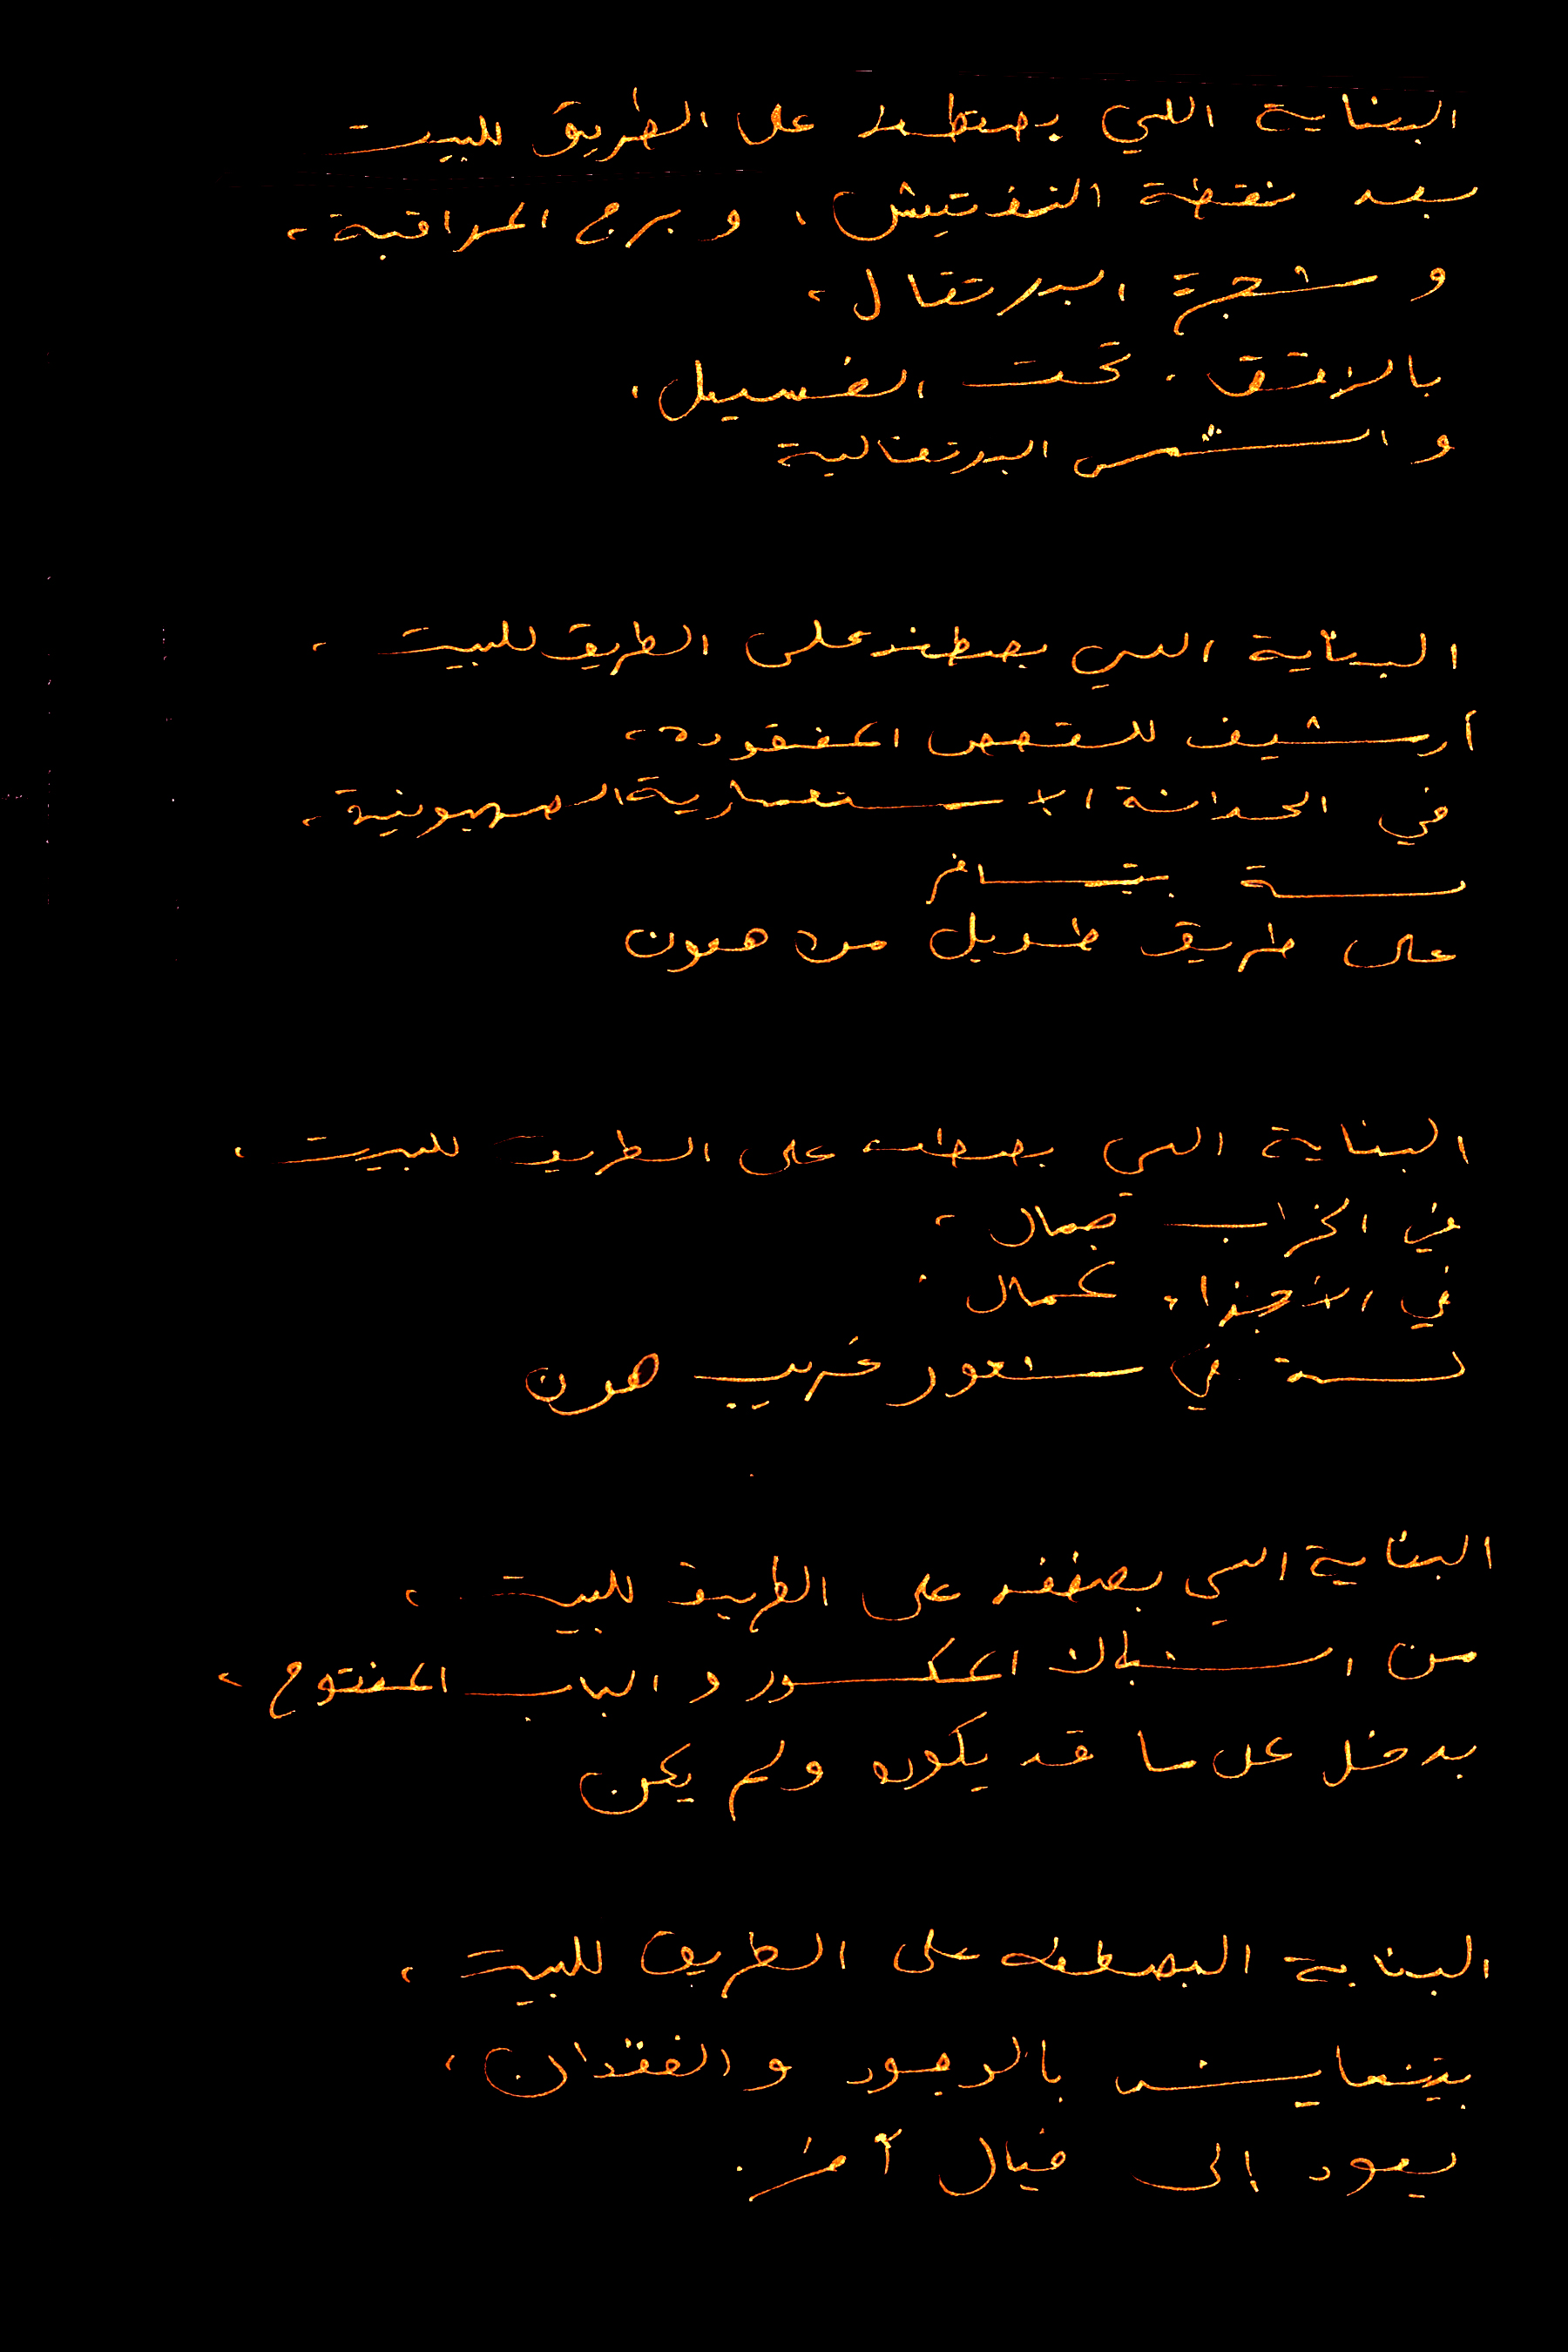 البناية اللي بصطفله على الطريق للبيت
بعد نقطة التفتيش، وبرج المراقبة،
و شجرة البرتقال،
بالافق. تحت الغسيل،
و الشمس البرتقالية
البناية اللي على الطريق للبيت،
أرشيف للقصص المفقودة،
في الحداثة الاستعمارية الصهيونية،
لسة بتسافر
على طريق طويل من هون
البناية اللي على الطريق للبيت،
في الخراب جمال،
في الأجزاء كمال.
لسة في شعور غريب هون
البناية اللي على الطريق للبيت،
من الشباك المكسور و الباب المفتوح،
بدخل على ما قد يكون ولم يكن
البناية على الطريق للبيت،
بالوجود والفقدان،
يعود إلى خيال آخر.